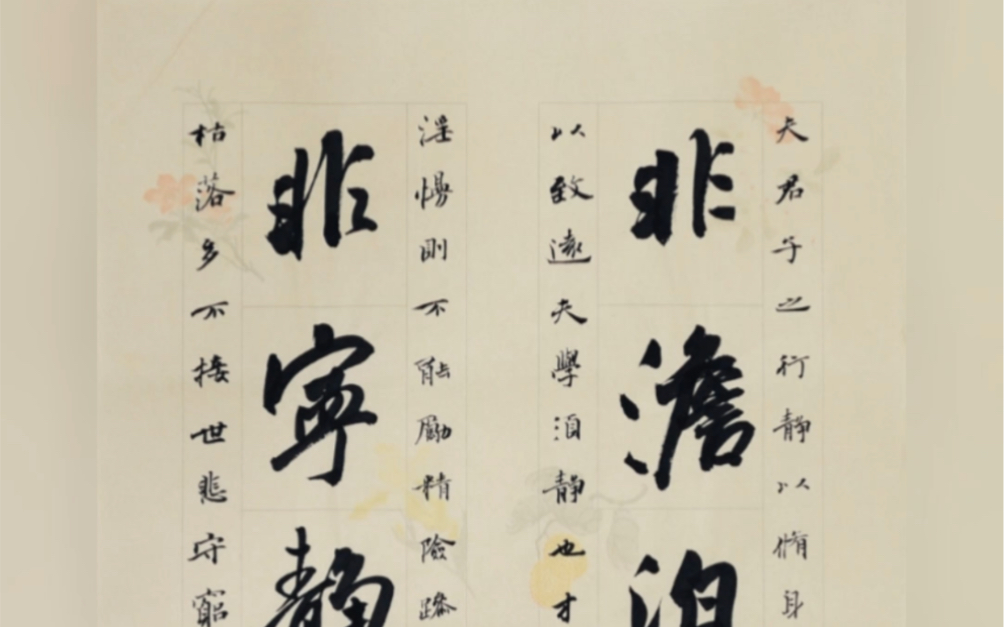 夫君子之行静以脩身
非澹泊
以致遠夫學須静也才
淫慢則不能勵精險躁
非寧静
枯落多不接世悲守窮